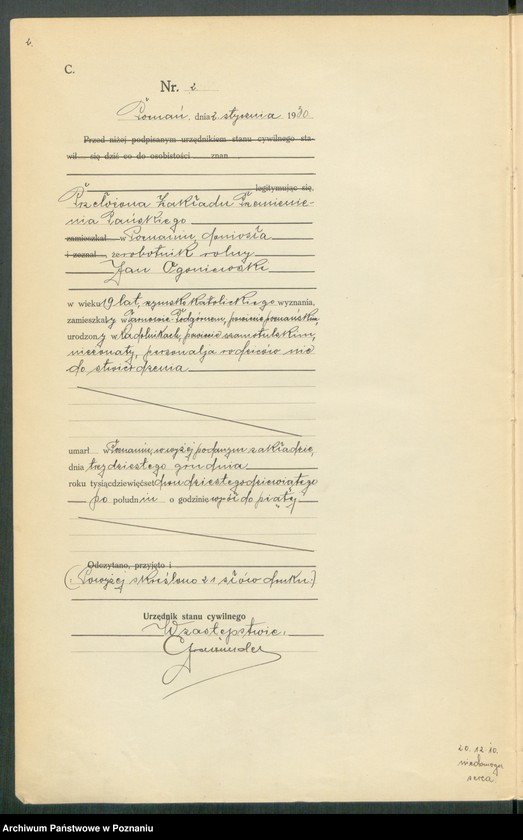 2.
C.
Nr. 2
Poznań, dnia 2 stycznia 1930
Przed niżej podpisanym urzędnikiem stanu cywilnego sta-
wił się dziś co do osobistości znan
legitymując się
Przełożona Zakładu Przemienie-
nia Pańskiego
zamieszkał w Poznaniu, doniosła
i zeznał, że robotnik rolny
Jan Ogoniewski
w wieku 19 lat, rzymsko katolickiego wyznania,
zamieszkały w Tarnowie Podgórnem, powiecie poznańskim,
urodzony w powiecie szamotulskim,
nieżonaty, personalja rodziców nie
do stwierdzenia
umarł w Poznaniu, w wyżej podanym zakładzie,
dnia trzydziestego grudnia
roku tysiącdziewięćset dwudziestego dziewiątego
po południu o godzinie wpół do piątej
Odczytano, przyjęto i
(Powyżej skreślono 21 słów druku.)
Urzędnik stanu cywilnego
W zastępstwie.
20.12.10.
niedomoga
serca.
Archiwum Państwowe w Poznaniu